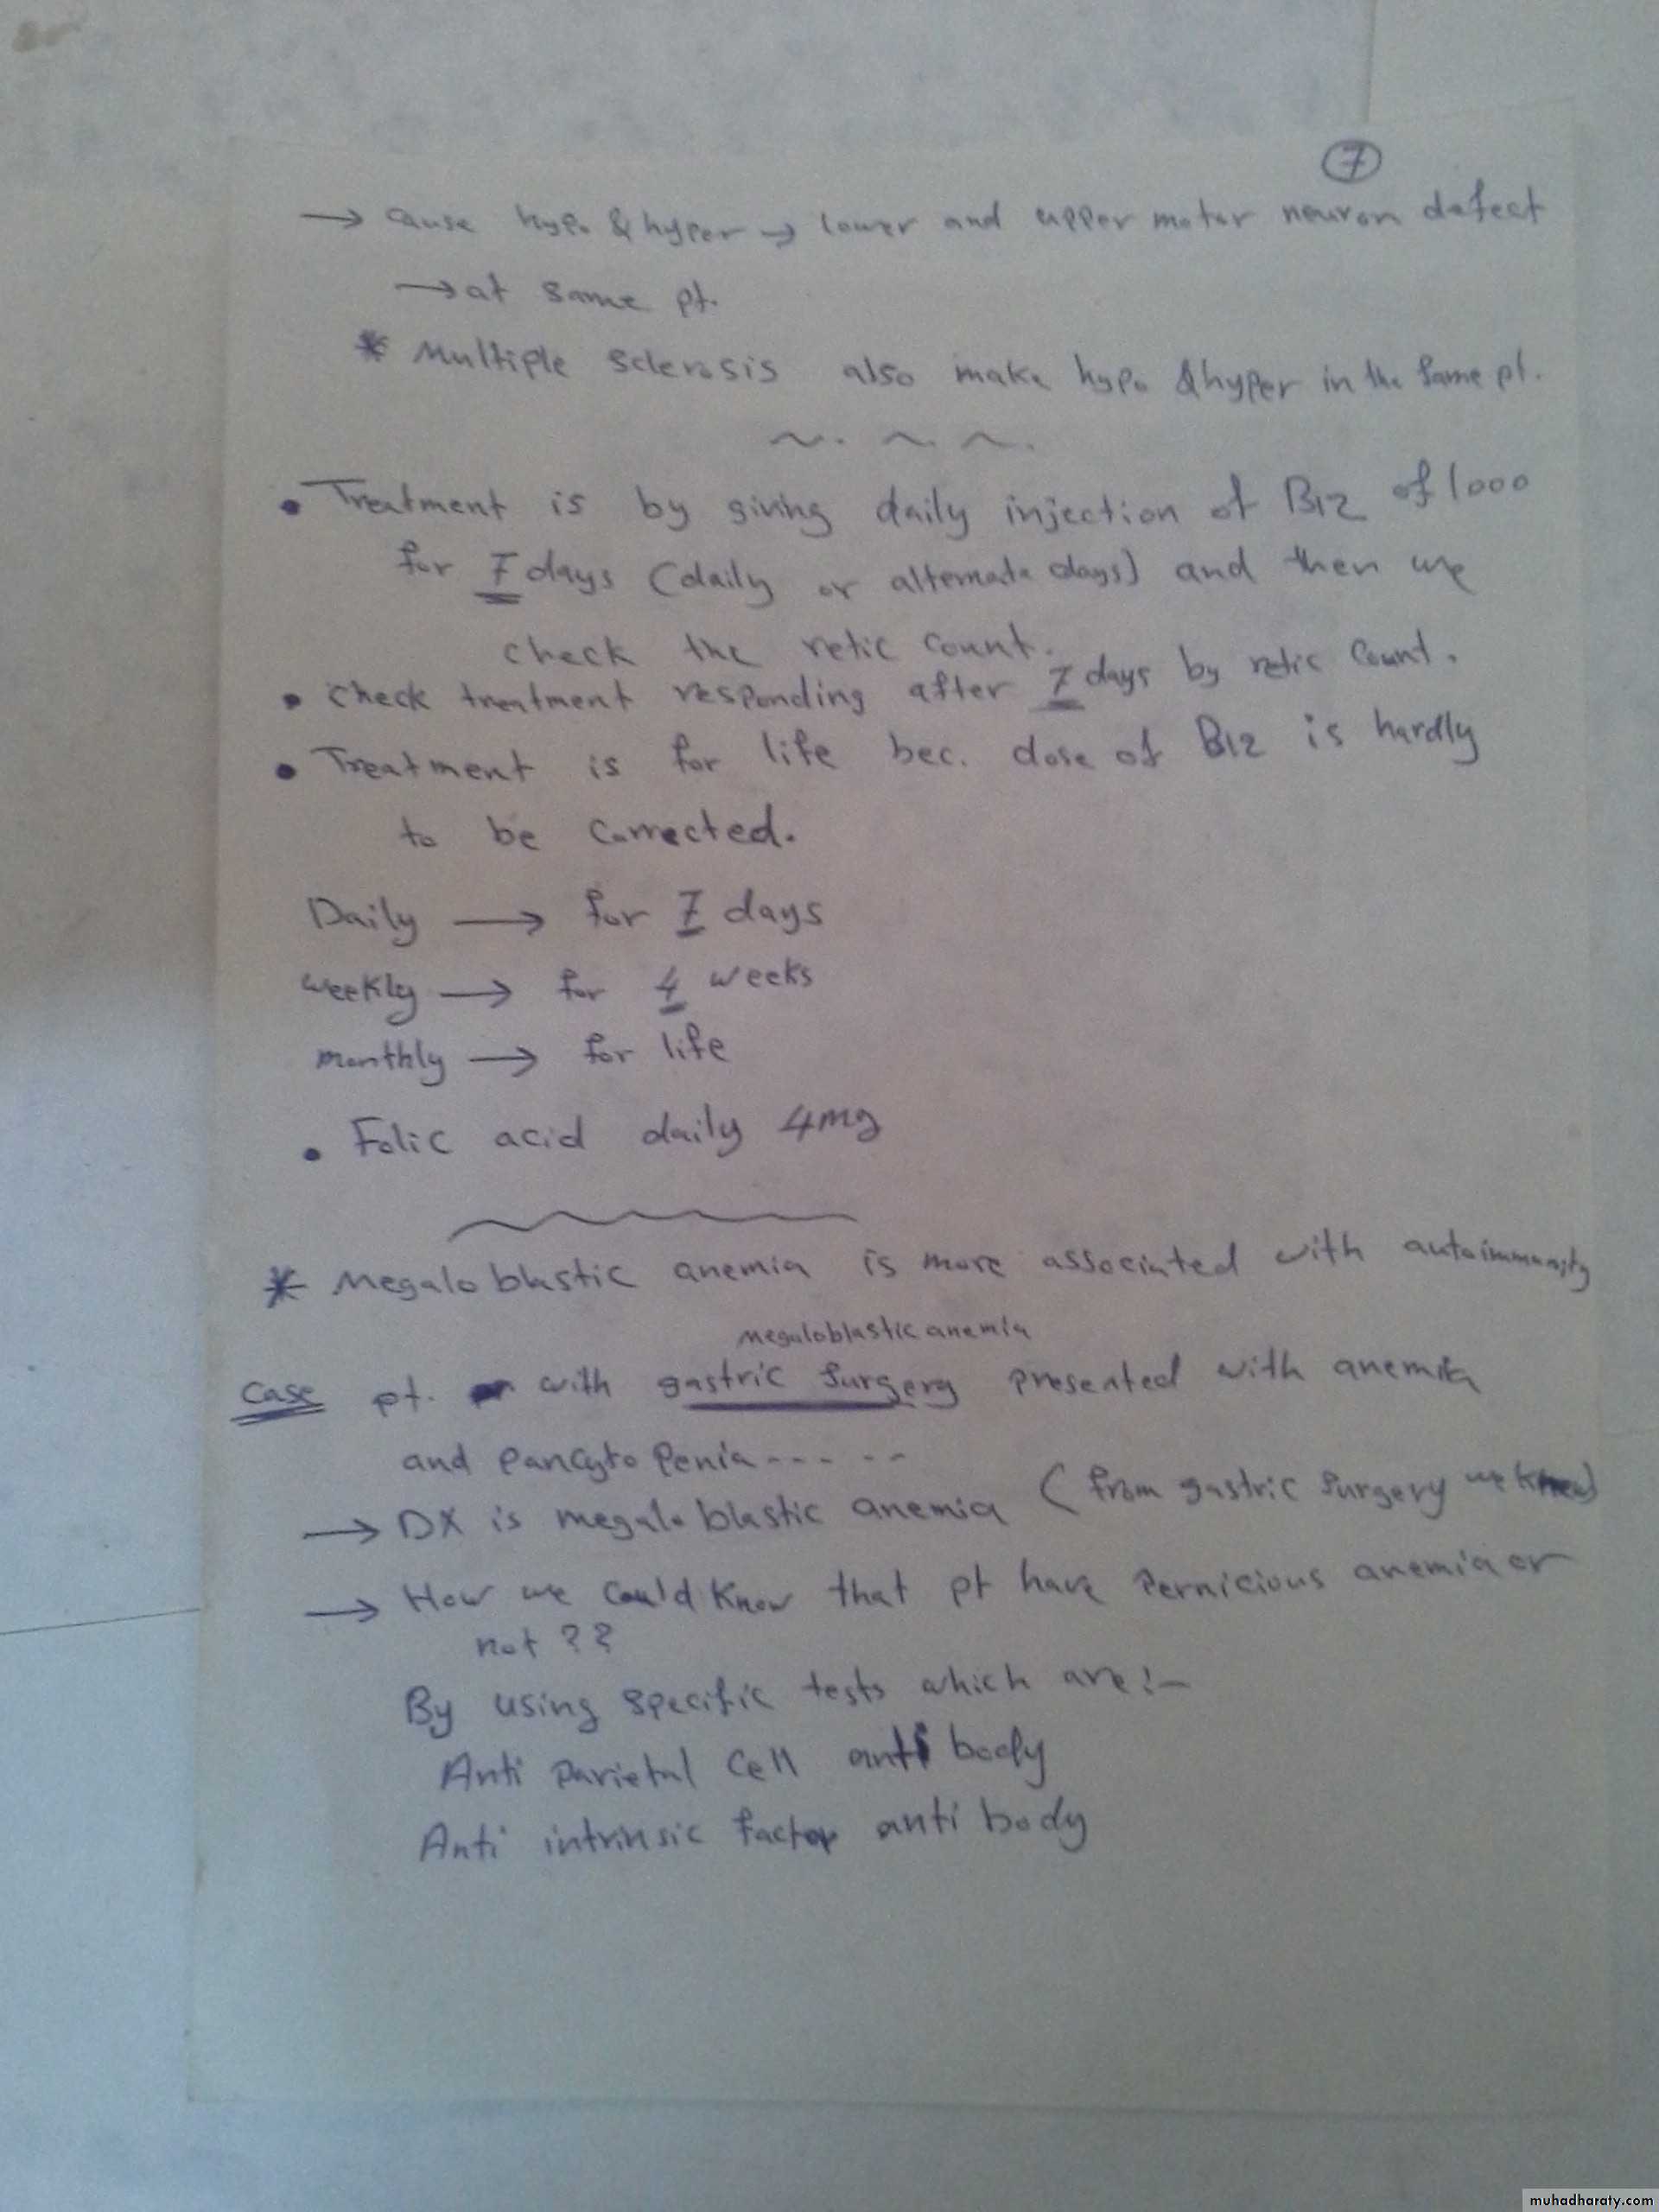 7
→ cause hypo & hyper → lower and upper motor neuron defect
→ at same pt.
* Multiple sclerosis also make hypo & hyper in the same pt.
• Treatment is by giving daily injection of B12 of 1000
for 7 days (daily or alternate days) and then we
check the retic count.
• check treatment responding after 7 days by retic count.
• Treatment is for life bec. dose of B12 is hardly
to be corrected.
Daily → for 7 days
weekly → for 4 weeks
monthly → for life
• Folic acid daily 4mg
* Megaloblastic anemia is more associated with autoimmunity
megaloblastic anemia
Case pt. with gastric surgery presented with anemia
and pancytopenia - - - - -
→ DX is megaloblastic anemia (from gastric surgery we know)
→ How we could know that pt have pernicious anemia or
not ??
By using specific tests which are :-
Anti parietal cell anti body
Anti intrinsic factor anti body
muhadharaty.com